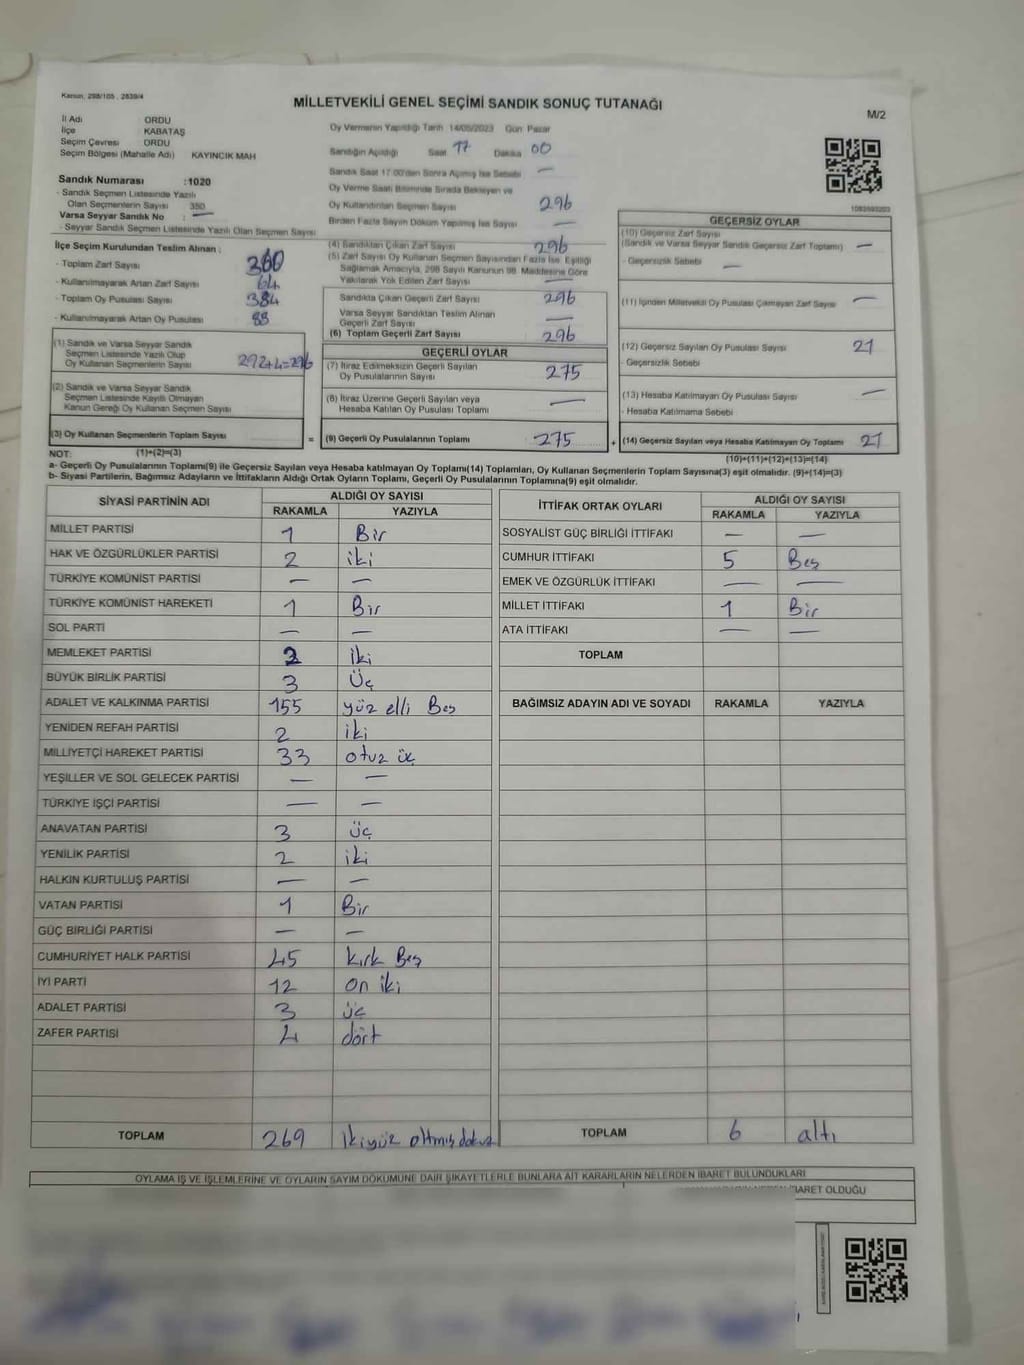 Kanun, 298/105 , 2839/4
MİLLETVEKİLİ GENEL SEÇİMİ SANDIK SONUÇ TUTANAĞI
M/2
İl Adı ORDU
İlçe KABATAŞ
Seçim Çevresi ORDU
Seçim Bölgesi (Mahalle Adı) KAYINCIK MAH
Sandık Numarası :1020
- Sandık Seçmen Listesinde Yazılı
Olan Seçmenlerin Sayısı 350
Varsa Seyyar Sandık No : —
- Seyyar Sandık Seçmen Listesinde Yazılı Olan Seçmen Sayısı
Oy Vermenin Yapıldığı Tarih 14/05/2023 Gün Pazar
Sandığın Açıldığı Saat 17 Dakika 00
Sandık Saat 17:00'den Sonra Açılmış İse Sebebi —
Oy Verme Saati Bitiminde Sırada Bekleyen ve
Oy Kullandırılan Seçmen Sayısı 296
Birden Fazla Sayım Döküm Yapılmış İse Sayısı —
İlçe Seçim Kurulundan Teslim Alınan :
- Toplam Zarf Sayısı 360
- Kullanılmayarak Artan Zarf Sayısı 64
- Toplam Oy Pusulası Sayısı 384
- Kullanılmayarak Artan Oy Pusulası 88
(1) Sandık ve Varsa Seyyar Sandık
Seçmen Listesinde Yazılı Olup
Oy Kullanan Seçmenlerin Sayısı 292+4=296
(2) Sandık ve Varsa Seyyar Sandık
Seçmen Listesinde Kayıtlı Olmayan
Kanun Gereği Oy Kullanan Seçmen Sayısı
(3) Oy Kullanan Seçmenlerin Toplam Sayısı =
(1)+(2)=(3)
(4) Sandıktan Çıkan Zarf Sayısı 296
(5) Zarf Sayısı Oy Kullanan Seçmen Sayısından Fazla İse, Eşitliği
Sağlamak Amacıyla, 298 Sayılı Kanunun 98. Maddesine Göre
Yakılarak Yok Edilen Zarf Sayısı —
Sandıkta Çıkan Geçerli Zarf Sayısı 296
Varsa Seyyar Sandıktan Teslim Alınan
Geçerli Zarf Sayısı —
(6) Toplam Geçerli Zarf Sayısı 296
GEÇERLİ OYLAR
(7) İtiraz Edilmeksizin Geçerli Sayılan
Oy Pusulalarının Sayısı 275
(8) İtiraz Üzerine Geçerli Sayılan veya
Hesaba Katılan Oy Pusulası Toplamı —
(9) Geçerli Oy Pusulalarının Toplamı 275 +
1083693203
GEÇERSİZ OYLAR
(10) Geçersiz Zarf Sayısı
(Sandık ve Varsa Seyyar Sandık Geçersiz Zarf Toplamı) —
- Geçersizlik Sebebi —
(11) İçinden Milletvekili Oy Pusulası Çıkmayan Zarf Sayısı —
(12) Geçersiz Sayılan Oy Pusulası Sayısı 21
- Geçersizlik Sebebi
(13) Hesaba Katılmayan Oy Pusulası Sayısı —
- Hesaba Katılmama Sebebi
(14) Geçersiz Sayılan veya Hesaba Katılmayan Oy Toplamı 21
(10)+(11)+(12)+(13)=(14)
NOT:
a- Geçerli Oy Pusulalarının Toplamı(9) ile Geçersiz Sayılan veya Hesaba katılmayan Oy Toplamı(14) Toplamları, Oy Kullanan Seçmenlerin Toplam Sayısına(3) eşit olmalıdır. (9)+(14)=(3)
b- Siyasi Partilerin, Bağımsız Adayların ve İttifakların Aldığı Ortak Oyların Toplamı, Geçerli Oy Pusulalarının Toplamına(9) eşit olmalıdır.
SİYASİ PARTİNİN ADI ALDIĞI OY SAYISI
RAKAMLA YAZIYLA
MİLLET PARTİSİ 1 Bir
HAK VE ÖZGÜRLÜKLER PARTİSİ 2 iki
TÜRKİYE KOMÜNİST PARTİSİ — —
TÜRKİYE KOMÜNİST HAREKETİ 1 Bir
SOL PARTİ — —
MEMLEKET PARTİSİ 2 iki
BÜYÜK BİRLİK PARTİSİ 3 Üç
ADALET VE KALKINMA PARTİSİ 155 yüz elli Beş
YENİDEN REFAH PARTİSİ 2 iki
MİLLİYETÇİ HAREKET PARTİSİ 33 otuz üç
YEŞİLLER VE SOL GELECEK PARTİSİ — —
TÜRKİYE İŞÇİ PARTİSİ — —
ANAVATAN PARTİSİ 3 üç
YENİLİK PARTİSİ 2 iki
HALKIN KURTULUŞ PARTİSİ — —
VATAN PARTİSİ 1 Bir
GÜÇ BİRLİĞİ PARTİSİ — —
CUMHURİYET HALK PARTİSİ 45 kırk Beş
İYİ PARTİ 12 on iki
ADALET PARTİSİ 3 üç
ZAFER PARTİSİ 4 dört
TOPLAM 269 ikiyüz altmış dokuz
İTTİFAK ORTAK OYLARI ALDIĞI OY SAYISI
RAKAMLA YAZIYLA
SOSYALİST GÜÇ BİRLİĞİ İTTİFAKI — —
CUMHUR İTTİFAKI 5 Beş
EMEK VE ÖZGÜRLÜK İTTİFAKI — —
MİLLET İTTİFAKI 1 Bir
ATA İTTİFAKI — —
TOPLAM
BAĞIMSIZ ADAYIN ADI VE SOYADI RAKAMLA YAZIYLA
TOPLAM 6 altı
OYLAMA İŞ VE İŞLEMLERİNE VE OYLARIN SAYIM DÖKÜMÜNE DAİR ŞİKAYETLERLE BUNLARA AİT KARARLARIN NELERDEN İBARET BULUNDUKLARI
İBARET OLDUĞU